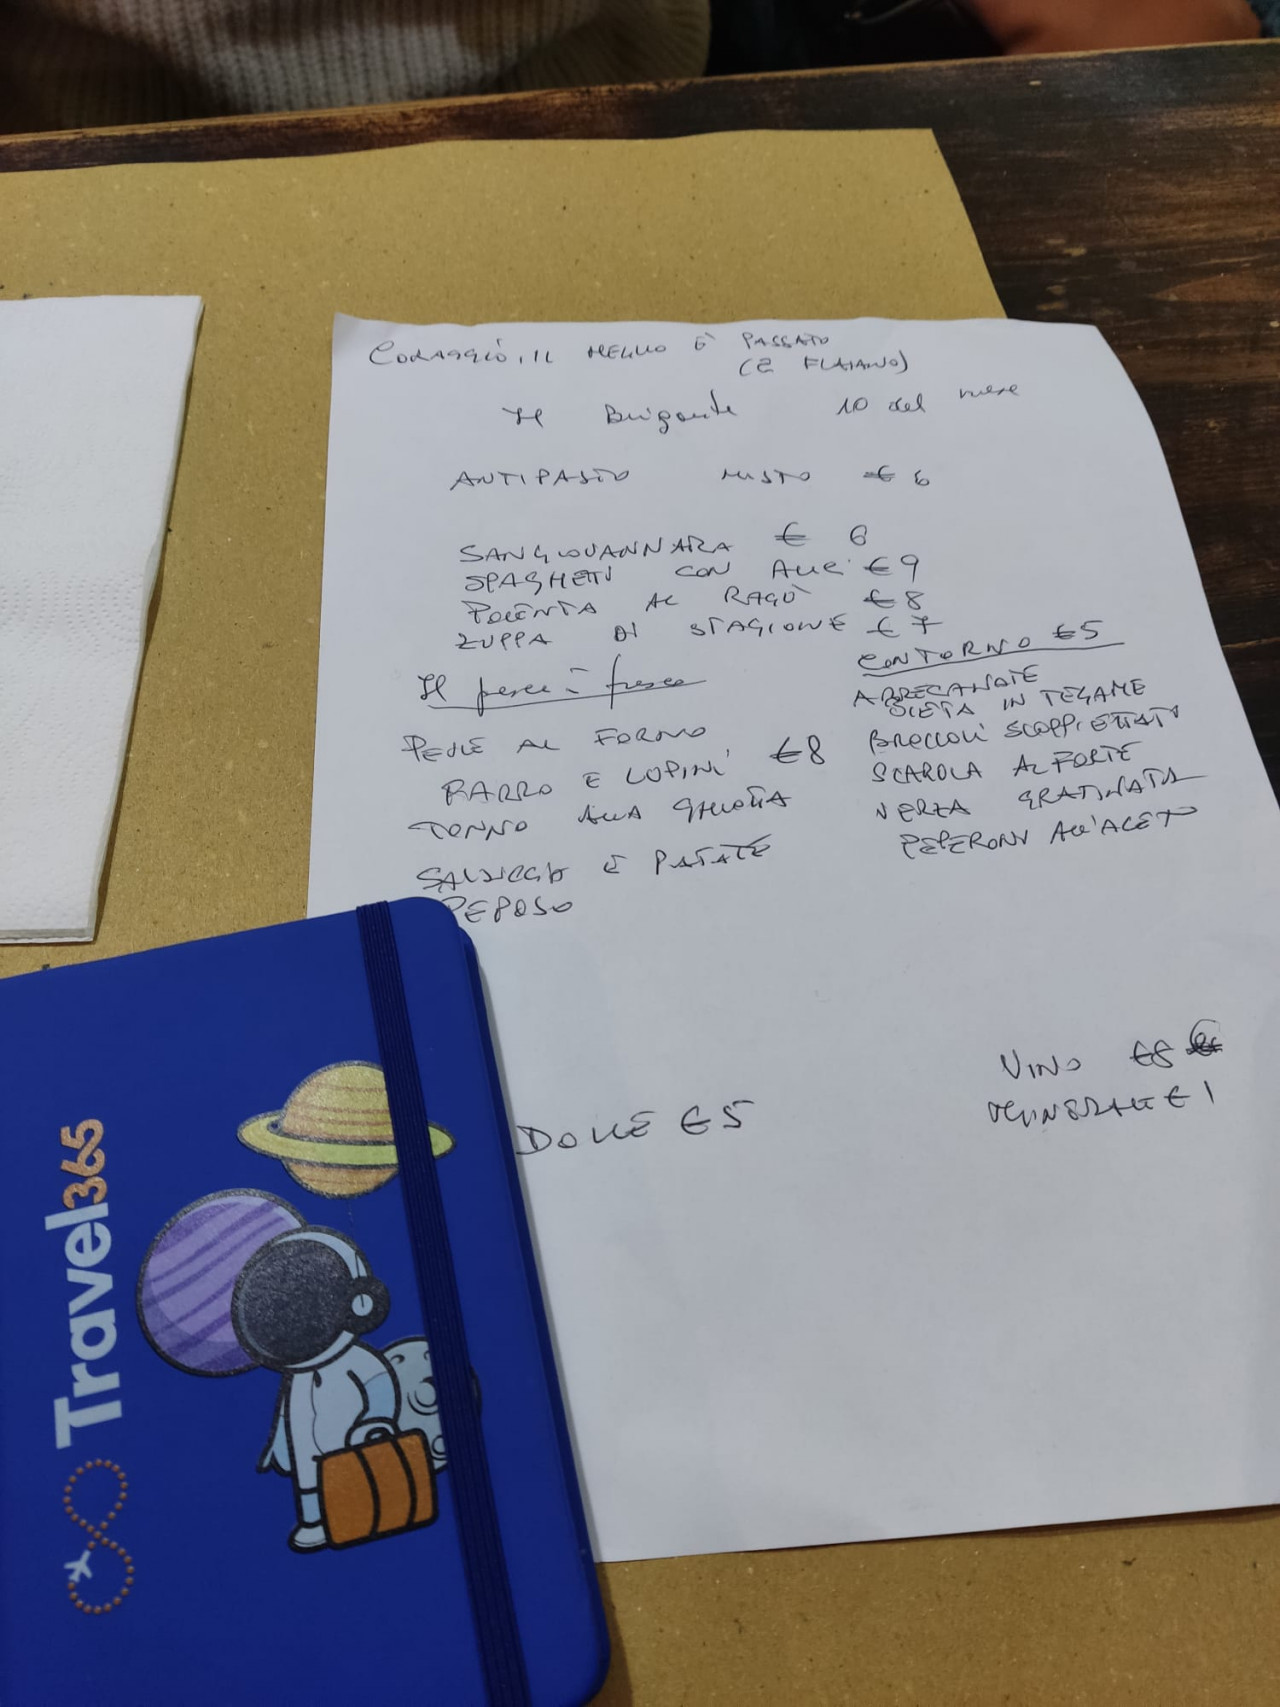 CORAGGIO, IL MEGLIO È PASSATO
(E FLAIANO)
Il Brigante 10 del mese
ANTIPASTO MISTO € 6
SANGIOVANNARA € 6
SPAGHETTI CON ALICI € 9
POLENTA AL RAGÙ € 8
ZUPPA DI STAGIONE € 7
Il pesce è fresco
PESCE AL FORNO
FARRO E LUPINI €8
TONNO ALLA GHIOTTA
SALSICCIA E PATATE
PEPOSO
CONTORNO €5
ARRECANATE
BIETA IN TEGAME
BROCCOLI SCOPPIETTATI
SCAROLA AL FORTE
VERZA GRATINATA
PEPERONI ALL'ACETO
VINO €8
MINERALE € 1
DOLCE €5
Travel365